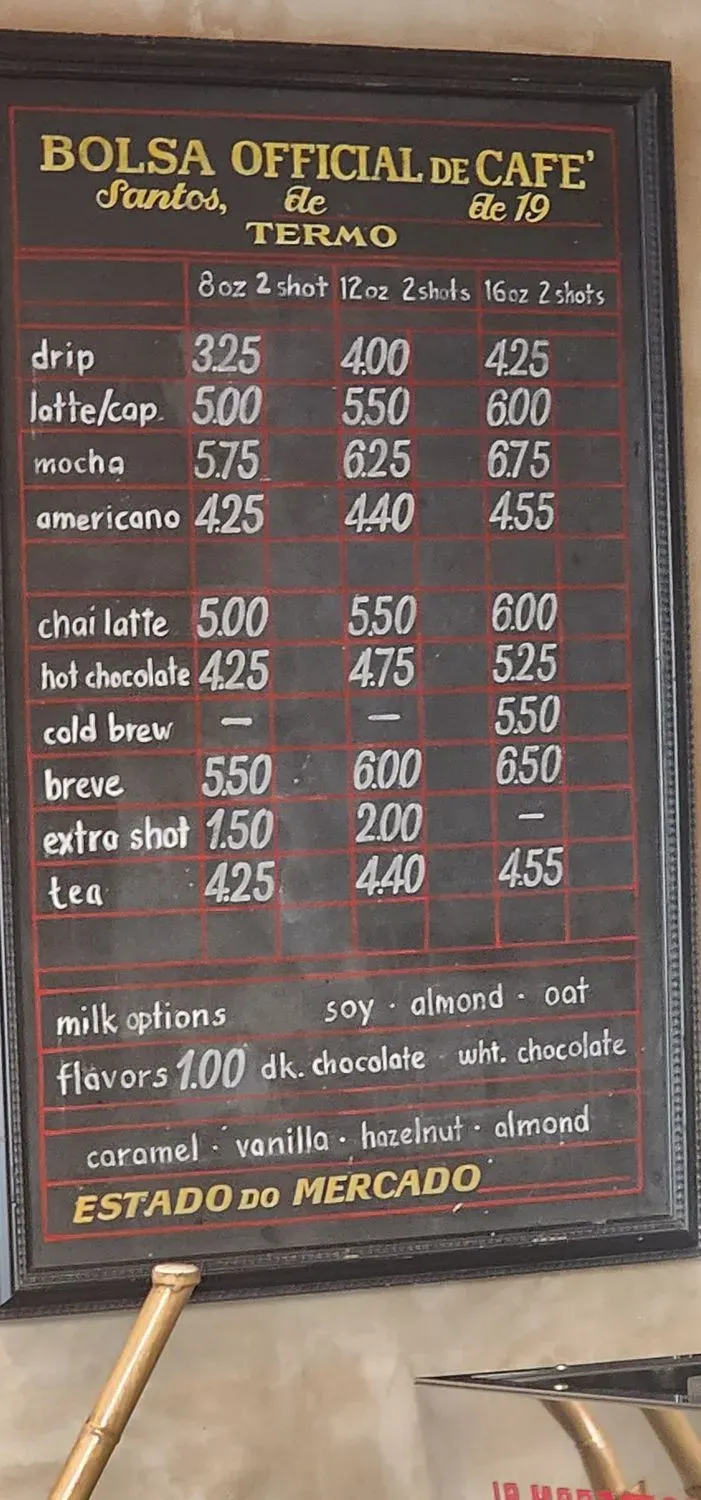 BOLSA OFFICIAL DE CAFE'
Santos, de de 19
TERMO
8oz 2 shot 12oz 2shots 16oz 2shots
drip 3.25 4.00 4.25
latte/cap. 5.00 5.50 6.00
mocha 5.75 6.25 6.75
americano 4.25 4.40 4.55
chai latte 5.00 5.50 6.00
hot chocolate 4.25 4.75 5.25
cold brew — — 5.50
breve 5.50 6.00 6.50
extra shot 1.50 2.00 —
tea 4.25 4.40 4.55
milk options soy · almond · oat
flavors 1.00 dk. chocolate · wht. chocolate
caramel · vanilla · hazelnut · almond
ESTADO DO MERCADO